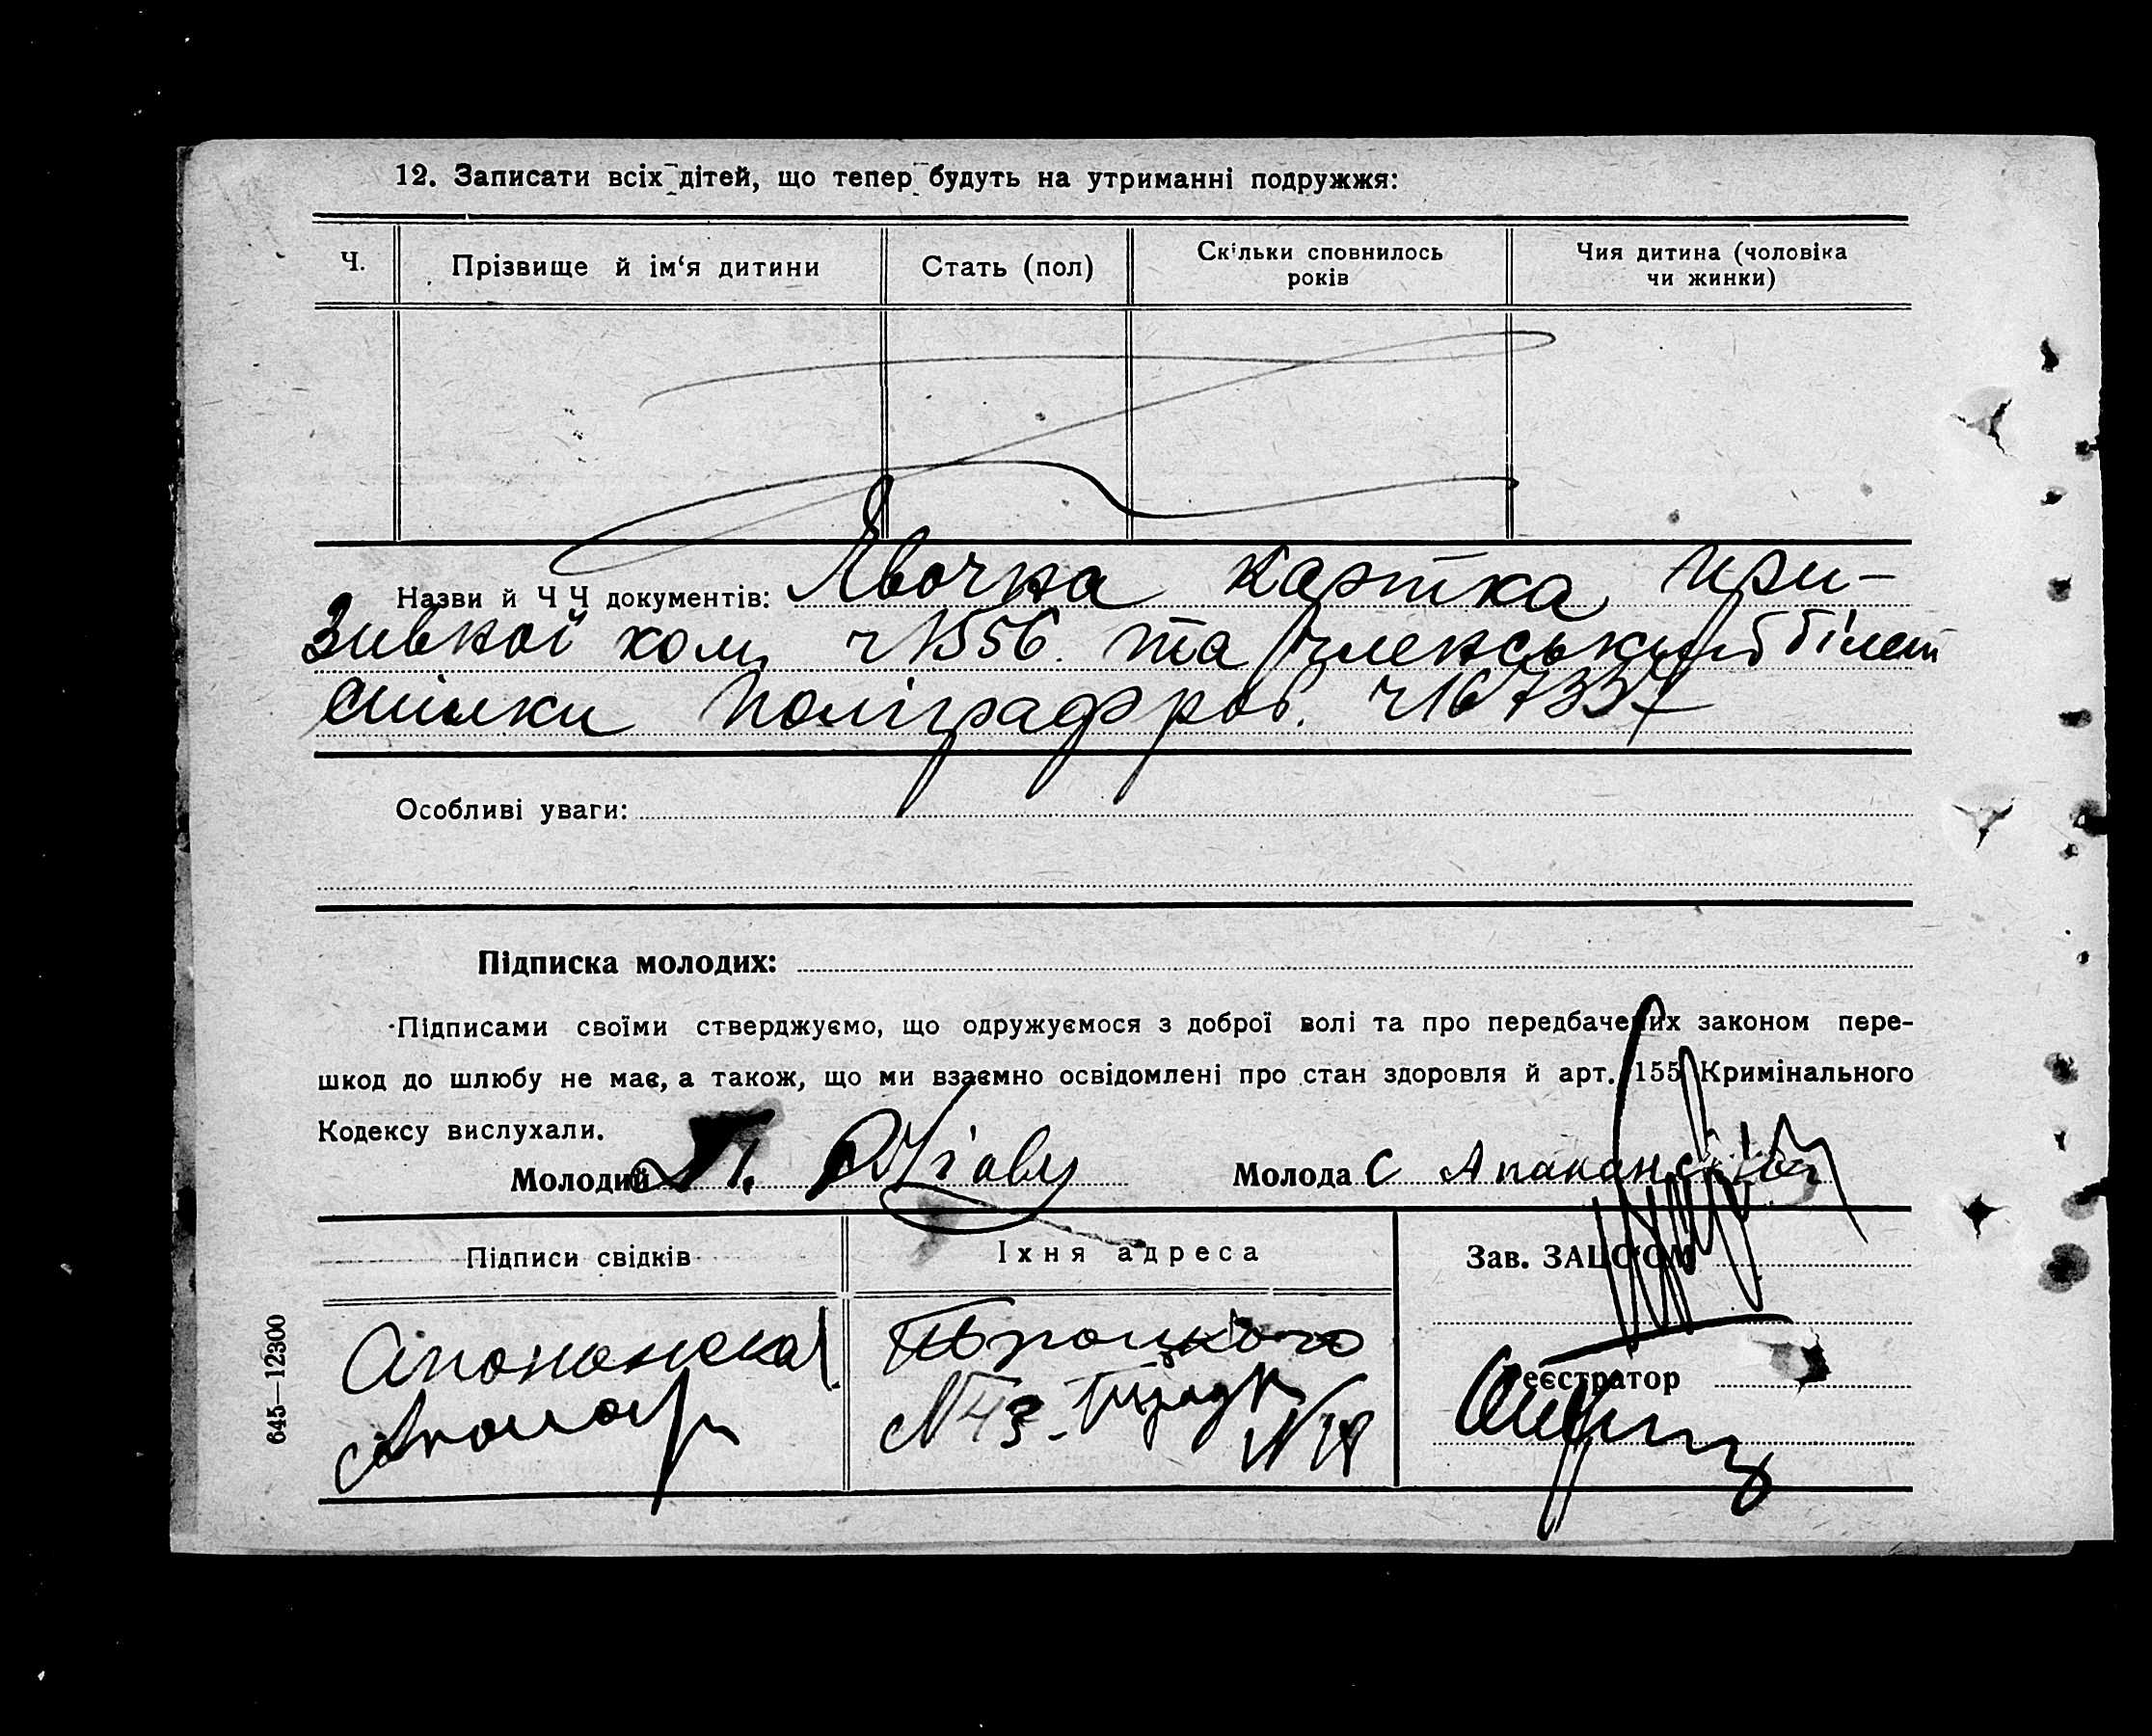 12. Записати всіх дітей, що тепер будуть на утриманні подружжя:
Ч.
Прізвище й ім‘я дитини
Стать (пол)
Скільки сповнилось
років
Чия дитина (чоловіка
чи жинки)
Назви й Ч Ч документів: Явочна картка при-
зивної ком. ч 1556. та членський білет
спілки поліграфроб. ч 167337
Особливі уваги:
Підписка молодих:
Підписами своїми стверджуємо, що одружуємося з доброї волі та про передбачених законом пере-
шкод до шлюбу не має, а також, що ми взаємно освідомлені про стан здоровля й арт. 155 Кримінального
Кодексу вислухали.
Молодий
Молода С
Підписи свідків
Їхня адреса
Зав. ЗАЦС‘ОМ
N 43
N
Реєстратор
645—12300